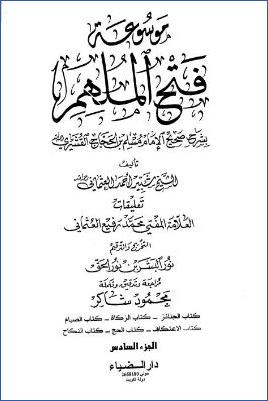 موسوعة
فتح الملهم
بشرح صحيح الإمام مسلم بن الحجاج القشيري
تأليف
الشيخ شبير أحمد العثماني
تعليقات
العلامة المفتي محمد رفيع العثماني
التخريج والترقيم
نور البشر بن نور الحق
مراجعة وتدقيق وتكملة
محمود شاكر
كتاب الجنائز – كتاب الزكاة – كتاب الصيام
كتاب الاعتكاف – كتاب الحج – كتاب النكاح
الجزء السادس
دار الضياء
دولة كويت